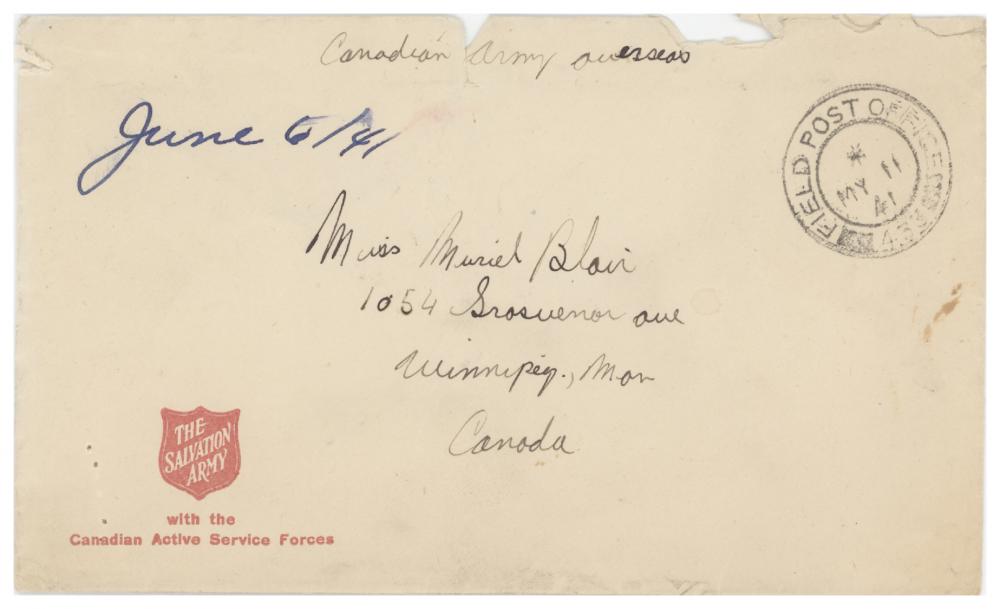 Canadian Army overseas
June 6/41
FIELD POST OFFICE
*
MY 11
41
Miss Muriel Blair
1054 Grosvenor ave
Winnipeg., Man
Canada
THE
SALVATION
ARMY
with the
Canadian Active Service Forces